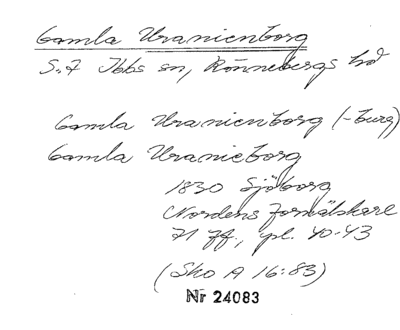 Gamla Uranienborg
S:t Ibbs sn, Rönnebergs hd
Gamla Uranienborg (-burg)
Gamla Uranieborg
1830 Sjöborg
Nordens fornälskare
71 ff., pl. 40-43
(Sko A 16:83)
Nr 24083